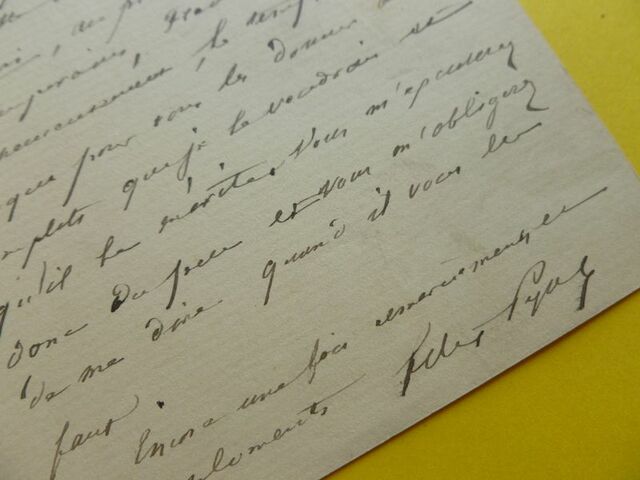 , un p
emporains,
heureusement, le temps
que pour vous les donner
mplets que je le voudrais et
qu'il le mérite. Vous m'excuserez
donc du peu et vous m'obligerez
de me dire quand il vous les
faut.
Encore une fois remerciements et
pliments Félix Pyat